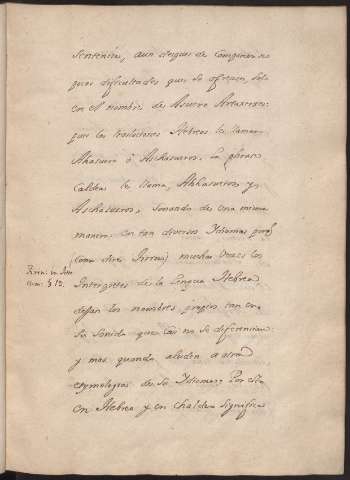 sentencias, aun despues de componer no
pocas dificultades que se ofrecen, solo
en el nombre de Asuero Artaxerxes:
que los traductores Hebreos le llaman
Ahasuero ô Aschasueros. La
Caldea le llama, Ahhasueros y
Aschasueros, sonando de una misma
manera en tan diversos Idiomas porq̃
(como dixo ) muchas veces los
Interpretes de la Lengua Hebrea,
dejan los nombres propios tan en
su sonido que casi no se diferencian:
y mas quando aluden a otras
etymologias de su Idioma: Por esso
en Hebrea y en Chaldea significa